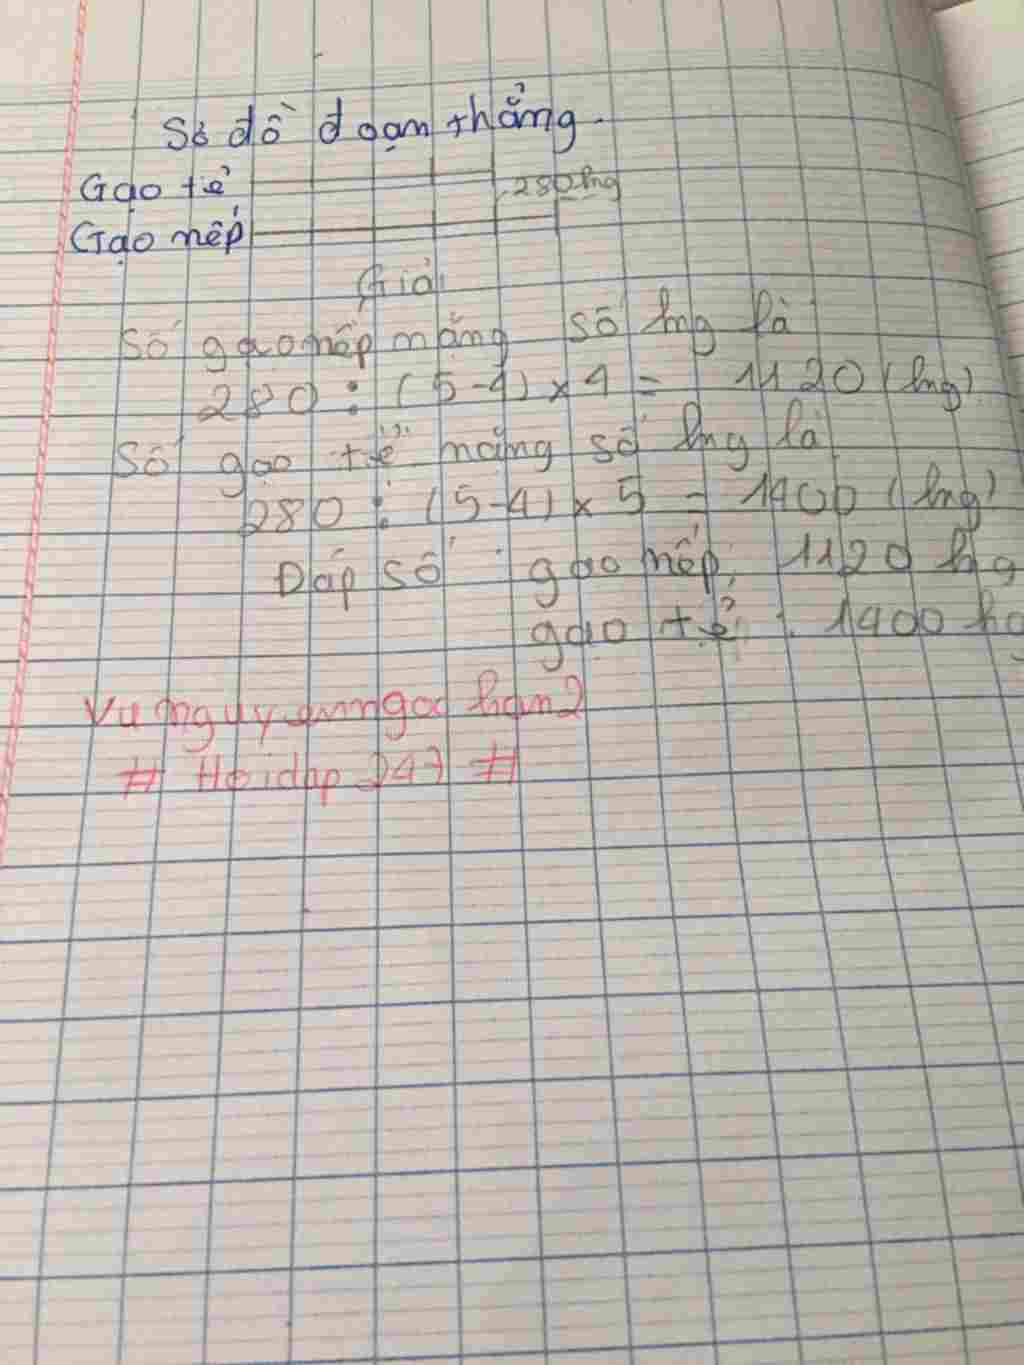 Sơ đồ đoạn thẳng.
Gạo tẻ
280kg
Gạo nếp
Giải
Số gạo nếp nặng số kg là
280 : (5-4) x 4 = 1120 (kg)
Số gạo tẻ nặng số kg là
280 : (5-4) x 5 = 1400 (kg)
Đáp số : gạo nếp: 1120 kg
gạo tẻ : 1400 kg
# Hoidap 247 #